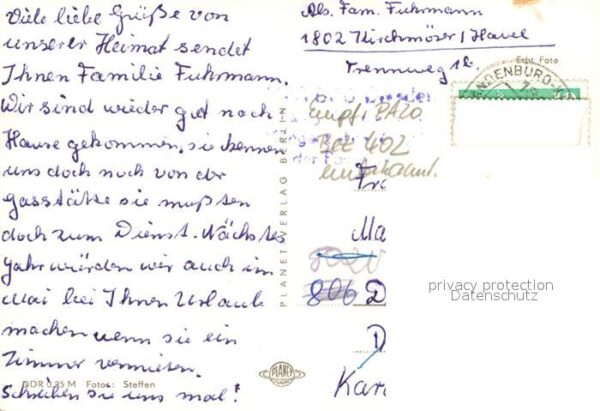 Viele liebe Grüße von
unserer Heimat sendet
Ihnen Familie Fuhrmann.
Wir sind wieder gut nach
Hause gekommen, sie kennen
uns doch noch von der
Gasstätte sie mußten
doch zum Dienst. Nächstes
Jahr würden wir auch im
Mai bei Ihnen Urlaub
machen wenn sie ein
Zimmer vermieten.
Schreiben sie uns mal!
DDR 0,25 M Fotos: Steffen
PLANET-VERLAG BERLIN
PLANET
Abs. Fam. Fuhrmann
1802 Kirchmöser / Havel
Trennweg 12.
Echt Foto
BRANDENBURG
Empf. PA20
Bez 402
unbekannt.
Fr
Ma
8020
806 D
D
Kar
privacy protection
Datenschutz